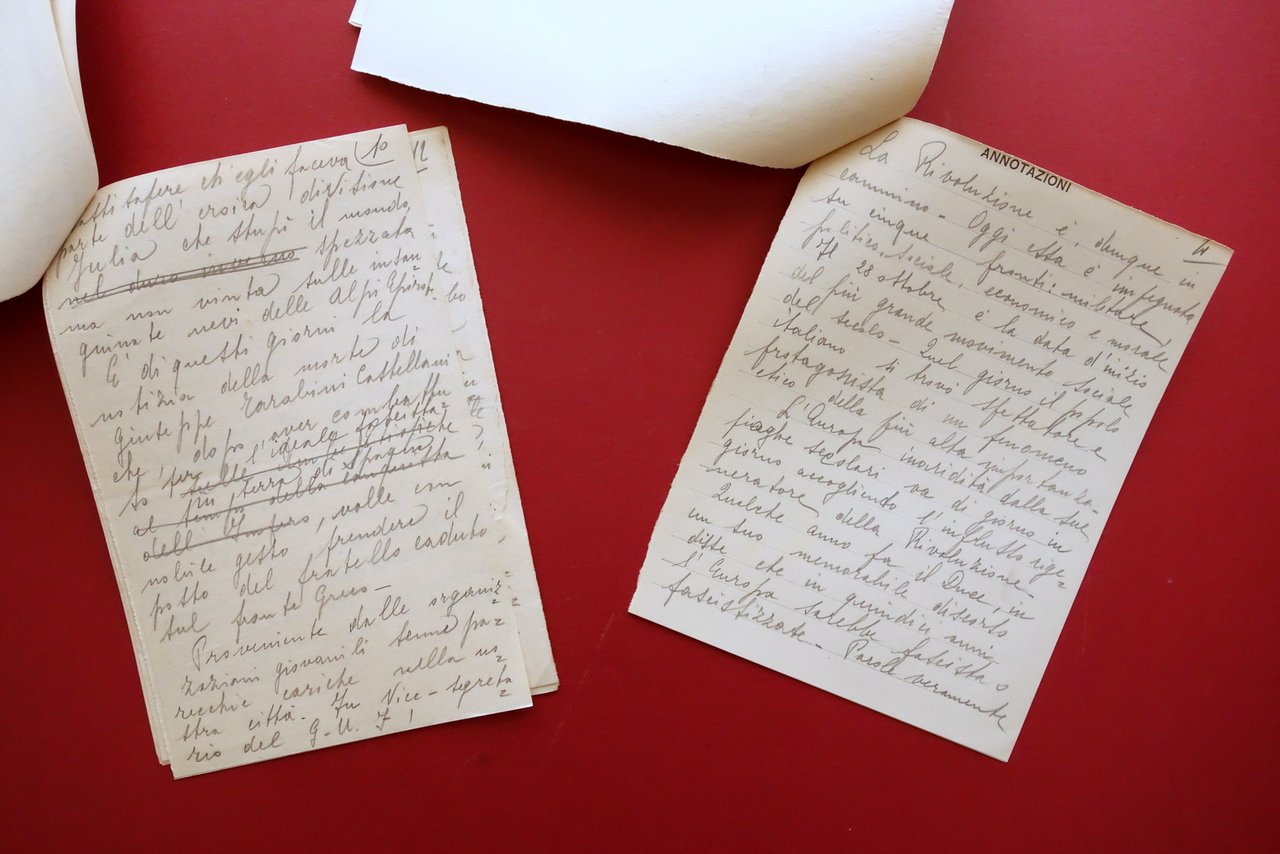 fatti sapere ch'egli faceva 10
parte dell'eroica divisione
Julia che stupì il mondo,
nel duro inverno spezzata
ma non vinta sulle insan
guinate nevi delle Alpi Epirote
E' di questi giorni la
notizia della morte di
Giuseppe Tarabini Castellani
che, dopo, aver combattu
to per l'ideale fascista
in terra di Spagna
al tempo della conquista
dell'Impero, volle con
nobile gesto, prendere il
posto del fratello caduto
sul fronte Greco -
Proveniente dalle organiz=
zazioni giovanili tenne pa=
recchie cariche nella no=
stra città. Fu Vice-segreta=
rio del G.U.F!
12
ANNOTAZIONI
La Rivoluzione è, dunque in
cammino - Oggi essa è impegnata
su cinque fronti: militare,
politico, sociale, economico e morale
Il 28 ottobre è la data d'inizio
del più grande movimento sociale
del secolo - Quel giorno il popolo
italiano si trovò spettatore e
protagonista di un fenomeno
etico della più alta importanza -
L'Europa inaridita dalle sue
piaghe secolari va di giorno in
giorno accogliendo l'influsso rige=
neratore della Rivoluzione -
Qualche anno fa il Duce, in
un suo memorabile discorso
disse che in quindici anni
l'Europa sarebbe fascista o
fascistizzata - Parole veramente